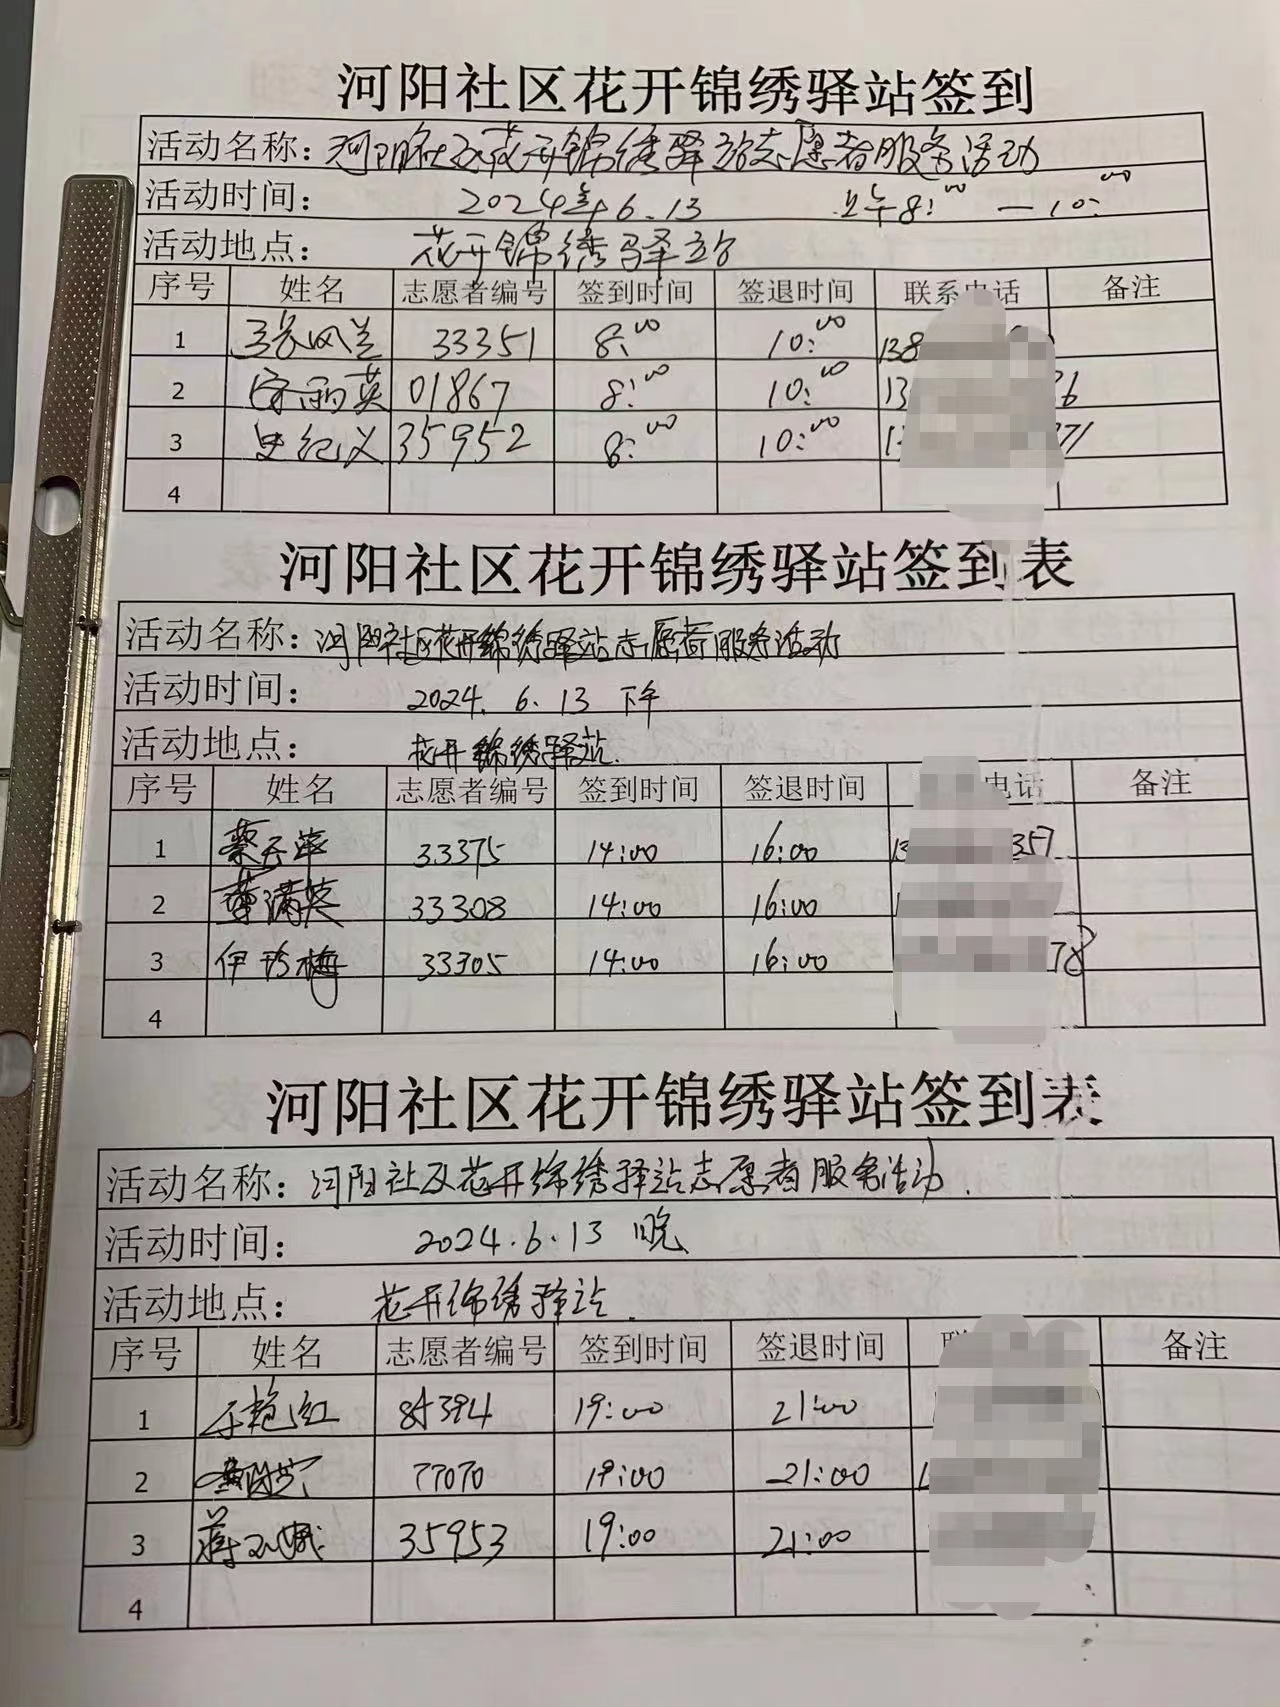 河阳社区花开锦绣驿站签到
活动名称：河阳社区花开锦绣驿站志愿者服务活动
活动时间： 2024年6.13 上午8:00 — 10:00
活动地点： 花开锦绣驿站
序号 姓名 志愿者编号 签到时间 签退时间 联系电话 备注
1 风兰 33351 8:00 10:00 138
2 丽英 01867 8:00 10:00 13 26
3 史纪义 35952 8:00 10:00 1 71
4
河阳社区花开锦绣驿站签到表
活动名称：河阳社区花开锦绣驿站志愿者服务活动
活动时间： 2024.6.13 下午
活动地点： 花开锦绣驿站.
序号 姓名 志愿者编号 签到时间 签退时间 电话 备注
1 蔡 萍 33375 14:00 16:00 13 357
2 满英 33308 14:00 16:00
3 伊珍梅 33305 14:00 16:00 78
4
河阳社区花开锦绣驿站签到表
活动名称：河阳社区花开锦绣驿站志愿者服务活动.
活动时间： 2024.6.13 晚
活动地点： 花开锦绣驿站.
序号 姓名 志愿者编号 签到时间 签退时间 备注
1 于艳红 85394 19:00 21:00
2 77070 19:00 21:00
3 蒋 娥 35953 19:00 21:00
4